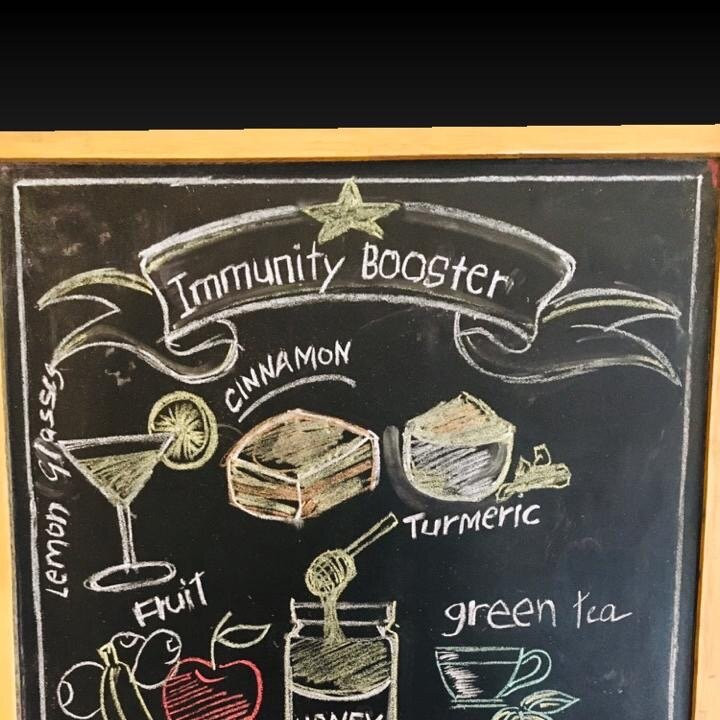 Immunity Booster
CINNAMON
Lemon Glasses
Turmeric
Fruit
green tea
HONEY